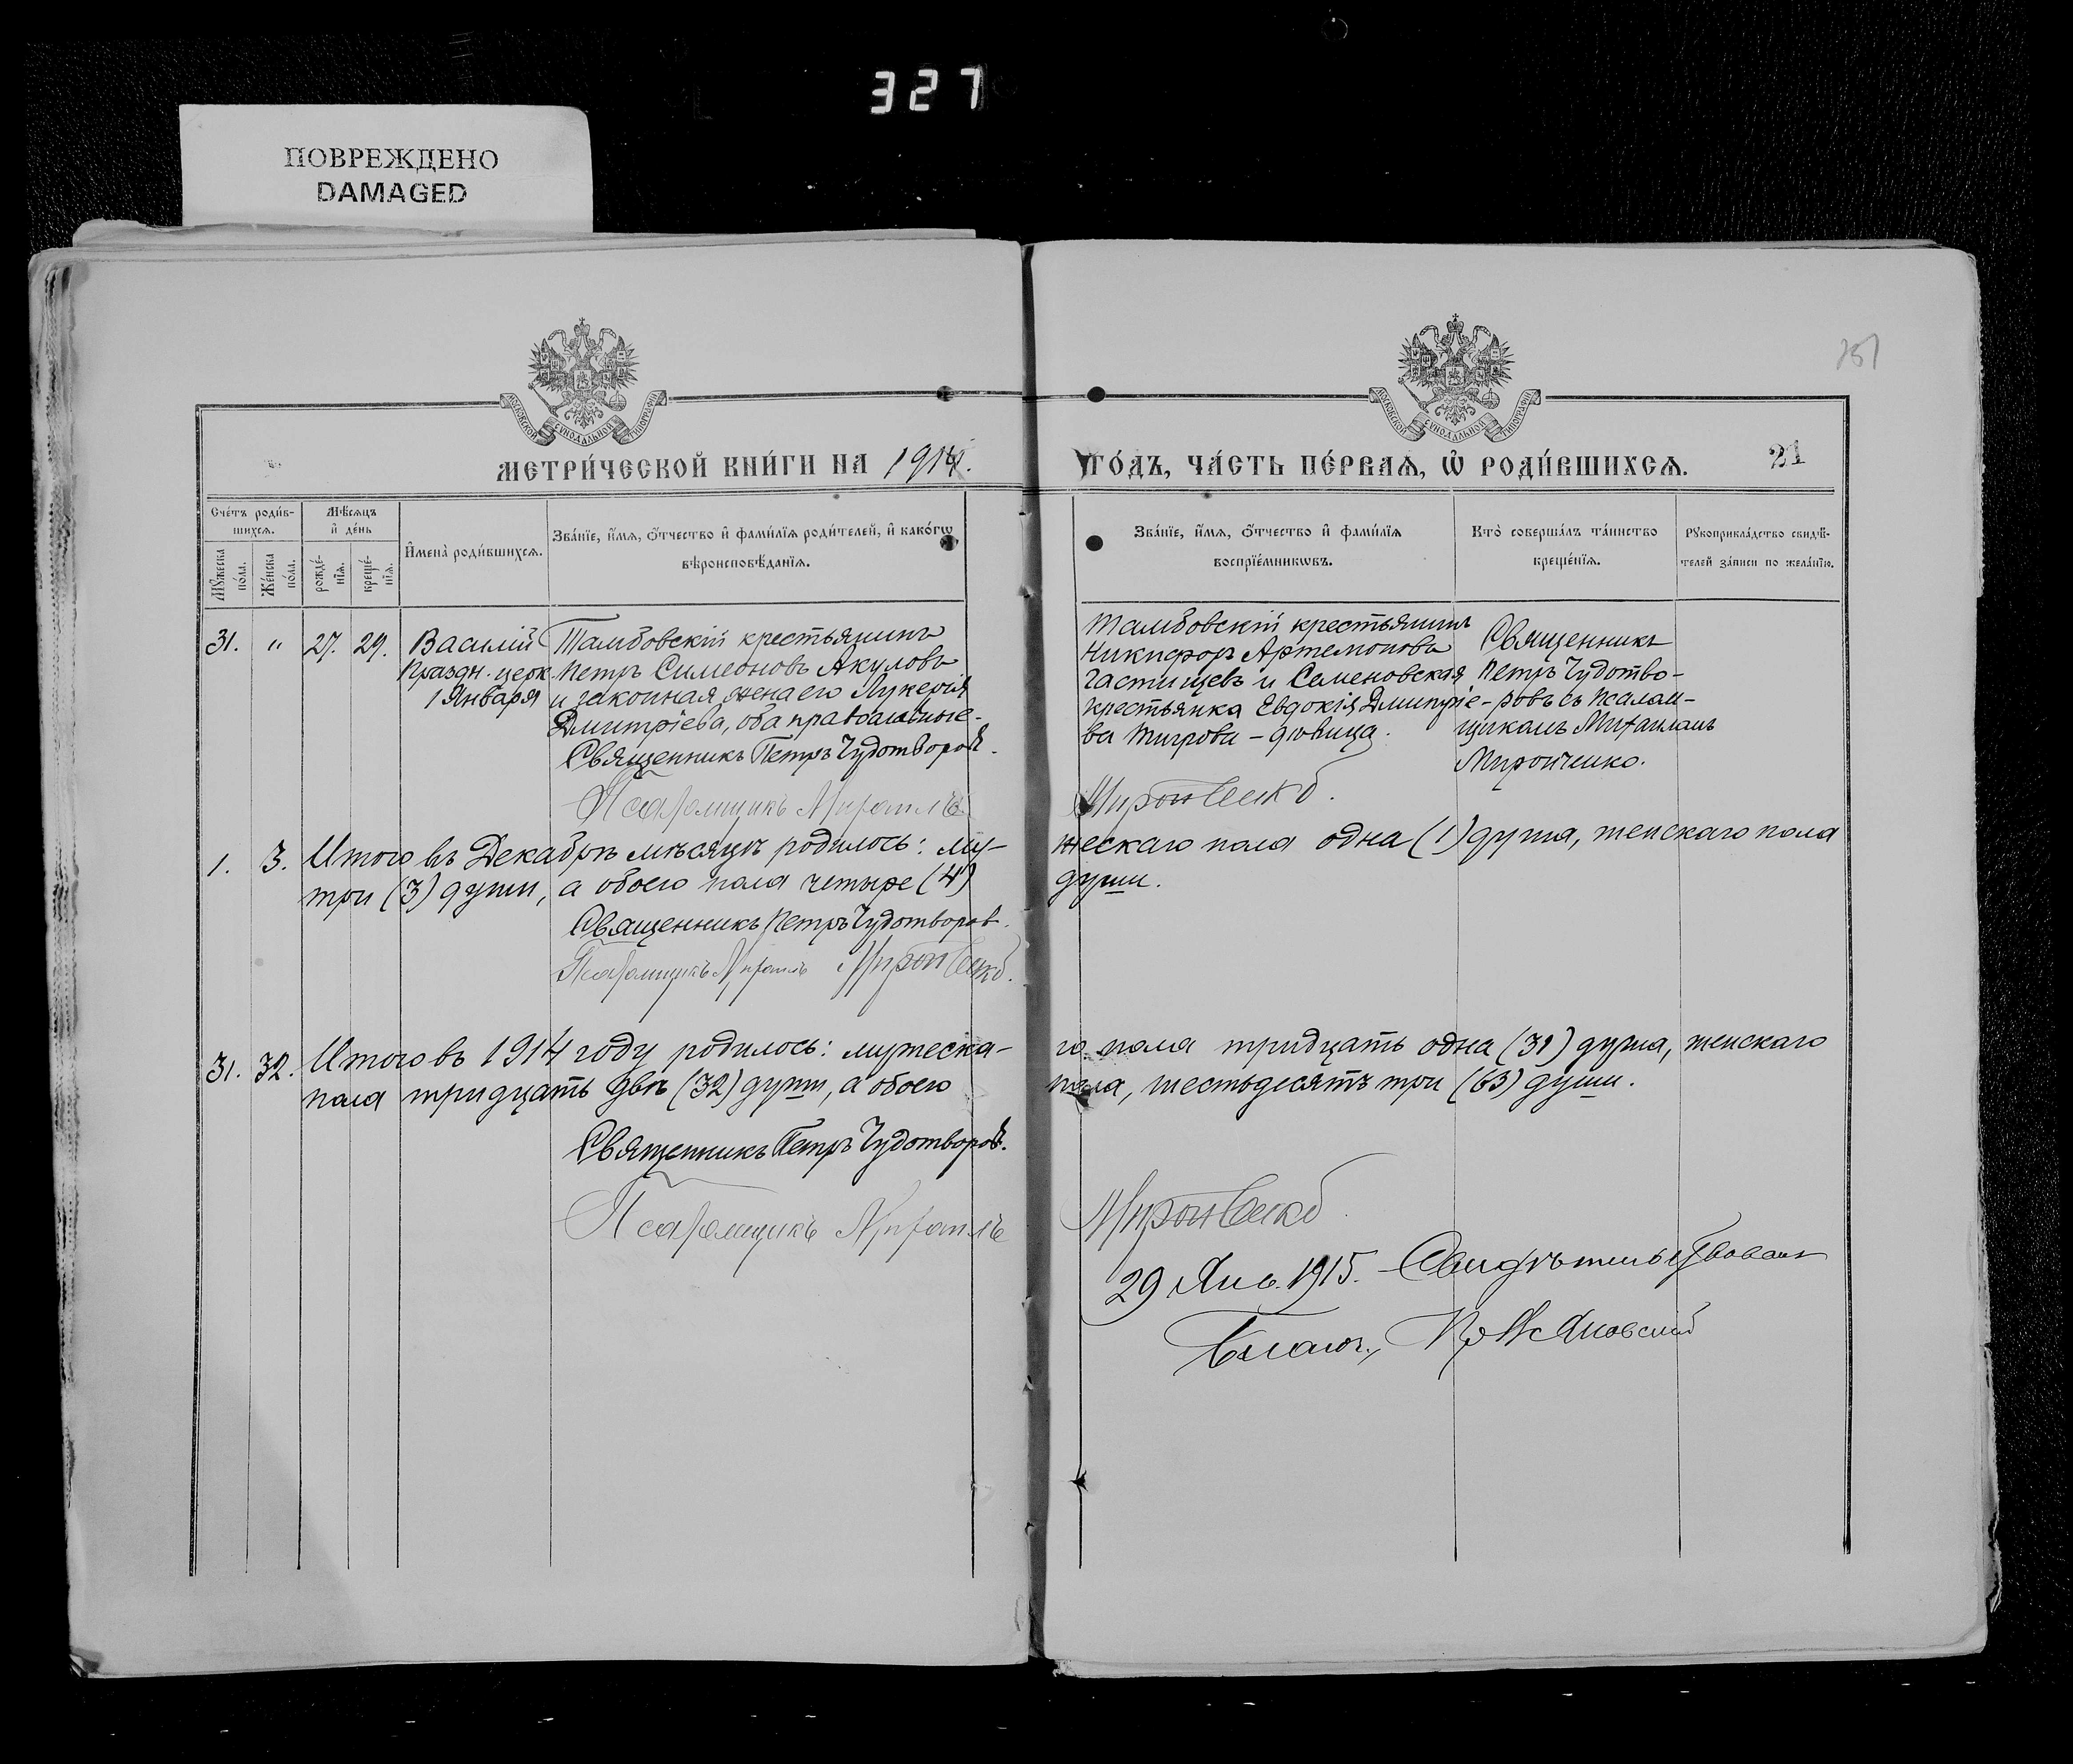 327
ПОВРЕЖДЕНО
DAMAGED
МОСКОВСКОЙ СѴНОДАЛЬНОЙ ТИПОГРАФІИ
МОСКОВСКОЙ СѴНОДАЛЬНОЙ ТИПОГРАФІИ
МЕТРИ́ЧЕСКОЙ КНИ́ГИ НА 1914.
ГО́ДЪ, ЧА́СТЬ ПЕ́РВАѦ, Ѡ҆ РОДИ́ВШИХСѦ.
21
Сче́тъ роди́в-
шихсѧ.
Мѣ́сѧцъ
и҆ де́нь
Мꙋ́жеска
по́ла.
Же́нска
по́ла.
рожде́-
нїѧ.
креще́-
нїѧ.
И҆мена̀ роди́вшихсѧ.
Зва́нїе, и҆́мѧ, ѻ҆́тчество и҆ фами́лїѧ роди́телей, и҆ како́гѡ
вѣроисповѣ́данїѧ.
Зва́нїе, и҆́мѧ, ѻ҆́тчество и҆ фами́лїѧ
воспрїе́мникѡвъ.
Кто̀ соверша́лъ та́инство
креще́нїѧ.
Рꙋкоприкла́дство свидѣ́-
телей за́писи по жела́нїю.
31. " 27. 29.
Василій
Праздн. церк.
1 Января
Тамбовскій крестьянинъ
Петръ Симеоновъ Акуловъ
и законная жена его Лукерія
Дмитріева, оба православные.
Священникъ Петръ Чудотворовъ.
Псаломщикъ Михаилъ
Тамбовскій крестьянинъ
Никифоръ Артемоновъ
Частищевъ и Семеновская
крестьянка Евдокія Дмитріе-
ва Тигрова - дѣвица.
Миройченко.
Священникъ
Петръ Чудотво-
ровъ съ псалом-
щикомъ Михаиломъ
Миройченко.
1. 3. Итого въ Декабрѣ мѣсяцѣ родилось: му-
жескаго пола одна (1) душа, женскаго пола
три (3) души, а обоего пола четыре (4)
души.
Священникъ Петръ Чудотворовъ.
Псаломщикъ Михаилъ Миройченко.
31. 32. Итого въ 1914 году родилось: мужеска-
го пола тридцать одна (31) душа, женскаго
пола тридцать двѣ (32) души, а обоего
пола, шестьдесятъ три (63) души.
Священникъ Петръ Чудотворовъ.
Псаломщикъ Михаилъ
Миройченко.
29 Янв. 1915. Свидѣтельствовалъ
Благоч.,